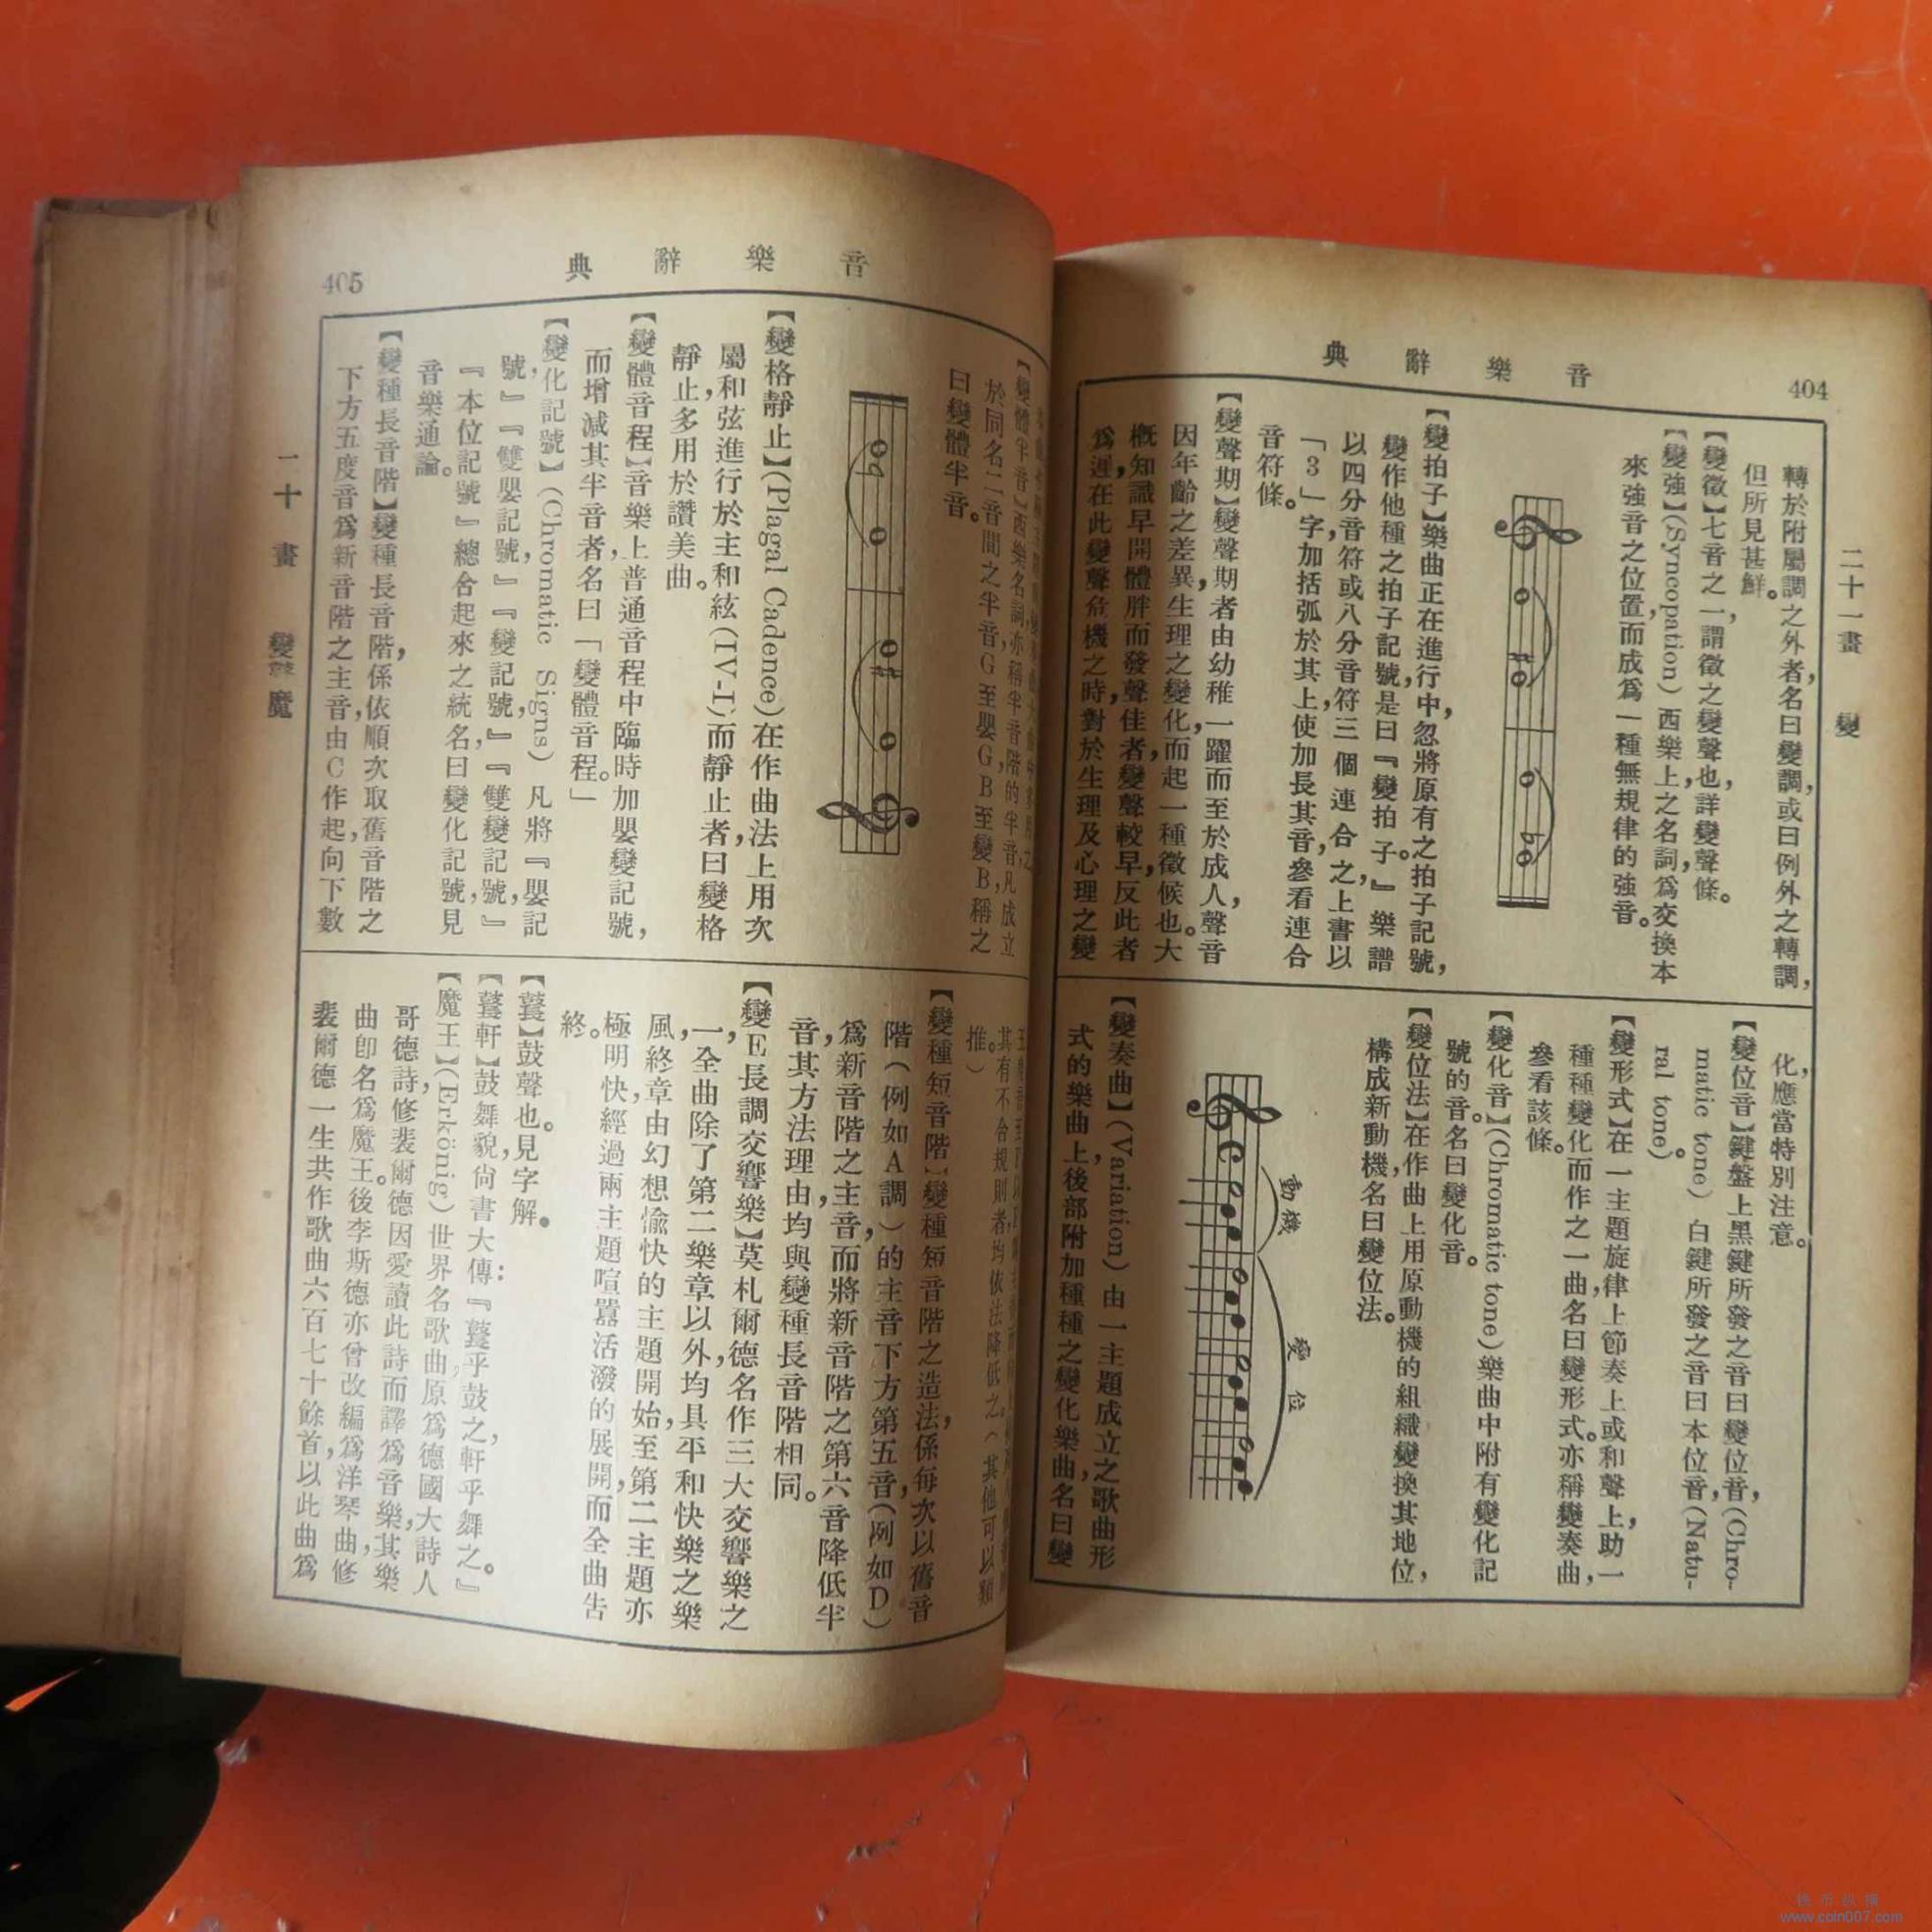 404
音樂辭典
二十一畫　變
轉於附屬調之外者,名曰變調,或曰例外之轉調,
但所見甚鮮。
【變徵】七音之一,謂徵之變聲也,詳變聲條。
【變強】(Syncopation)西樂上之名詞,爲交換本
來強音之位置,而成爲一種無規律的強音。
【變拍子】樂曲正在進行中,忽將原有之拍子記號,
變作他種之拍子記號,是曰『變拍子。』樂譜
以四分音符或八分音符三個連合之,上書以
「3」字,加括弧於其上,使加長其音,參看連合
音符條。
【變聲期】變聲期者由幼稚一躍而至於成人,聲音
因年齡之差異,生理之變化,而起一種徵候也。大
概知識早開,體胖而發聲佳者,變聲較早,反此者
爲遲,在此變聲危機之時,對於生理及心理之變
化,應當特別注意。
【變位音】鍵盤上黑鍵所發之音曰變位音,(Chro-
matic tone)白鍵所發之音曰本位音,(Natu-
ral tone)。
【變形式】在一主題旋律上節奏上或和聲上,助一
種種變化而作之一曲,名曰變形式。亦稱變奏曲,
參看該條。
【變化音】(Chromatic tone)樂曲中附有變化記
號的音。名曰變化音。
【變位法】在作曲上用原動機的組織變換其地位,
構成新動機,名曰變位法。
動機
變位
【變奏曲】(Variation)由一主題成立之歌曲形
式的樂曲上,後部附加種種之變化樂曲,名曰變
405
音樂辭典
二十一畫　變鼟魔
【變體半音】西樂名詞,亦稱半音階的半音,凡成立
於同名二音間之半音,G至嬰G,B至變B,稱之
曰變體半音。
【變格靜止】(Plagal Cadence)在作曲法上用次
屬和弦進行於主和絃(IV-I)而靜止者,曰變格
靜止,多用於讚美曲。
【變體音程】音樂上普通音程中臨時加嬰變記號,
而增減其半音者,名曰「變體音程。」
【變化記號】(Chromatic Signs)凡將『嬰記
號,』『雙嬰記號,』『變記號,』『雙變記號,』
『本位記號』總合起來之統名,曰變化記號,見
音樂通論。
【變種長音階】變種長音階,係依順次取舊音階之
下方五度音爲新音階之主音,由C作起,向下數
其有不合規則者均依法降低之(其他可以類
推。)
【變種短音階】變種短音階之造法,係每次以舊音
階(例如A調)的主音下方第五音,(例如D)
爲新音階之主音,而將新音階之第六音降低半
音,其方法理由均與變種長音階相同。
【變E長調交響樂】莫札爾德名作三大交響樂之
一,全曲除了第二樂章以外,均具平和快樂之樂
風,終章由幻想愉快的主題開始,至第二主題亦
極明快,經過兩主題喧囂活潑的展開,而全曲告
終。
【鼟】鼓聲也。見字解。
【鼟軒】鼓舞貌,尙書大傳:『鼟乎鼓之,軒乎舞之。』
【魔王】(Erkönig)世界名歌曲,原爲德國大詩人
哥德詩,修裴爾德因愛讀此詩而譯爲音樂,其樂
曲卽名爲魔王。後李斯德亦曾改編爲洋琴曲,修
裴爾德一生共作歌曲六百七十餘首,以此曲爲
www.coin007.com